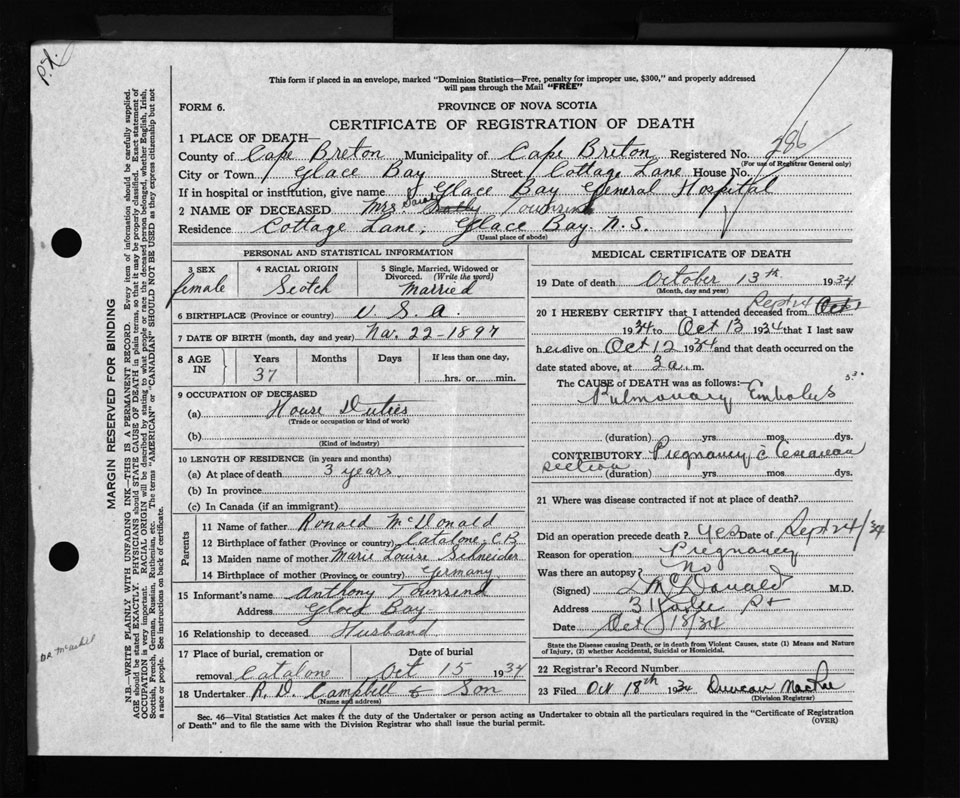 P.X.
This form if placed in an envelope, marked "Dominion Statistics—Free, penalty for improper use, $300," and properly addressed
will pass through the Mail "FREE"
FORM 6.
PROVINCE OF NOVA SCOTIA
CERTIFICATE OF REGISTRATION OF DEATH
1 PLACE OF DEATH—
County of Cape Breton Municipality of Cape Briton Registered No. 286
(For use of Registrar General only)
City or Town Glace Bay Street Cottage Lane House No.
If in hospital or institution, give name Glace Bay General Hospital
2 NAME OF DECEASED Mrs Sarah Sally Townsend
Residence Cottage Lane, Glace Bay. N.S.
(Usual place of abode)
PERSONAL AND STATISTICAL INFORMATION
3 SEX female
4 RACIAL ORIGIN Scotch
5 Single, Married, Widowed or Divorced. (Write the word) Married
6 BIRTHPLACE (Province or country) U. S. A.
7 DATE OF BIRTH (month, day and year) Nov. 22-1897
8 AGE IN Years 37 Months Days If less than one day, hrs. or min.
9 OCCUPATION OF DECEASED
(a) House Duties
(Trade or occupation or kind of work)
(b)
(Kind of industry)
10 LENGTH OF RESIDENCE (in years and months)
(a) At place of death 3 years
(b) In province
(c) In Canada (if an immigrant)
Parents
11 Name of father Ronald McDonald
12 Birthplace of father (Province or country) Catalone C.B
13 Maiden name of mother Marie Louise Schneider
14 Birthplace of mother (Province or country) Germany
15 Informant's name Anthony Townsend
Address Glace Bay
16 Relationship to deceased Husband
17 Place of burial, cremation or removal Catalone
Date of burial Oct 15 1934
18 Undertaker R. D. Campbell & Son
(Name and address)
MEDICAL CERTIFICATE OF DEATH
19 Date of death October 13th 1934
(Month, day and year)
20 I HEREBY CERTIFY that I attended deceased from Sept 24 Oct 1
1934 to Oct 13 1934 that I last saw
her alive on Oct 12 1934 and that death occurred on the
date stated above, at 3 a. m.
The CAUSE of DEATH was as follows:—
Pulmonary Embolus
(duration) yrs. mos. dys.
CONTRIBUTORY Pregnancy c Cesarean
section (duration) yrs. mos. dys.
21 Where was disease contracted if not at place of death?
Did an operation precede death? Yes Date of Sept 24/34
Reason for operation Pregnancy
Was there an autopsy? No
(Signed) McDonald M.D.
Address St
Date Oct 18/34
State the Disease causing Death, or in death from Violent Causes, state (1) Means and Nature
of Injury, (2) whether Accidental, Suicidal or Homicidal.
22 Registrar's Record Number
23 Filed Oct 18th 1934 Duncan MacRae
(Division Registrar)
Sec. 46—Vital Statistics Act makes it the duty of the Undertaker or person acting as Undertaker to obtain all the particulars required in the "Certificate of Registration
of Death" and to file the same with the Division Registrar who shall issue the burial permit.
(OVER)
MARGIN RESERVED FOR BINDING
N.B.—WRITE PLAINLY WITH UNFADING INK—THIS IS A PERMANENT RECORD. Every item of information should be carefully supplied.
AGE should be stated EXACTLY. PHYSICIANS should STATE CAUSE OF DEATH in plain terms, so that it may be properly classified. Exact statement of
OCCUPATION is very important. RACIAL ORIGIN will be described by stating to what people or race the deceased person belonged, whether English, Irish,
Scottish, French, German, Russian, Ruthenian, etc. The terms "AMERICAN" or "CANADIAN" SHOULD NOT BE USED as they express citizenship but not
a race or people. See instructions on back of certificate.